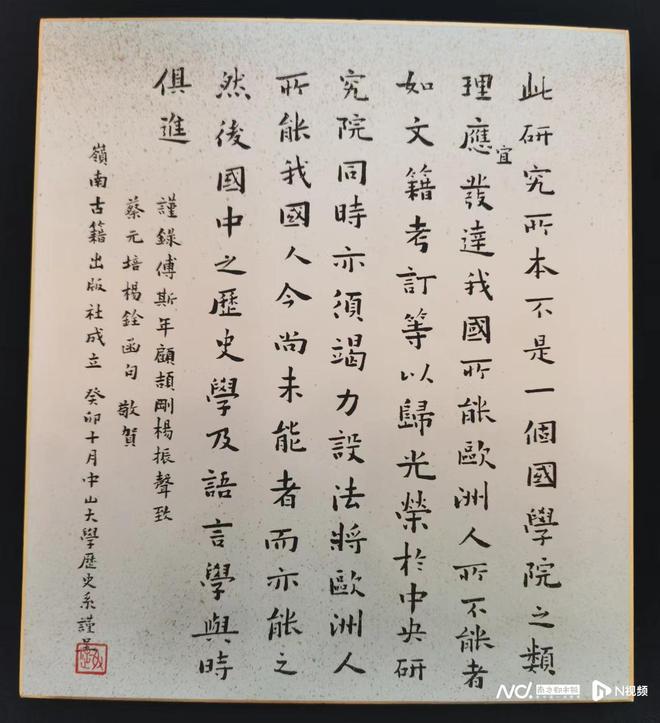 此研究所本不是一個國學院之類
理應宜發達我國所能歐洲人所不能者
如文籍考訂等以歸光榮於中央研
究院同時亦須竭力設法將歐洲人
所能我國人今尚未能者而亦能之
然後國中之歷史學及語言學與時
俱進
謹錄傅斯年顧頡剛楊振聲致
蔡元培楊銓函句 敬賀
嶺南古籍出版社成立 癸卯十月中山大學歷史系謹
南方都市報 N视频